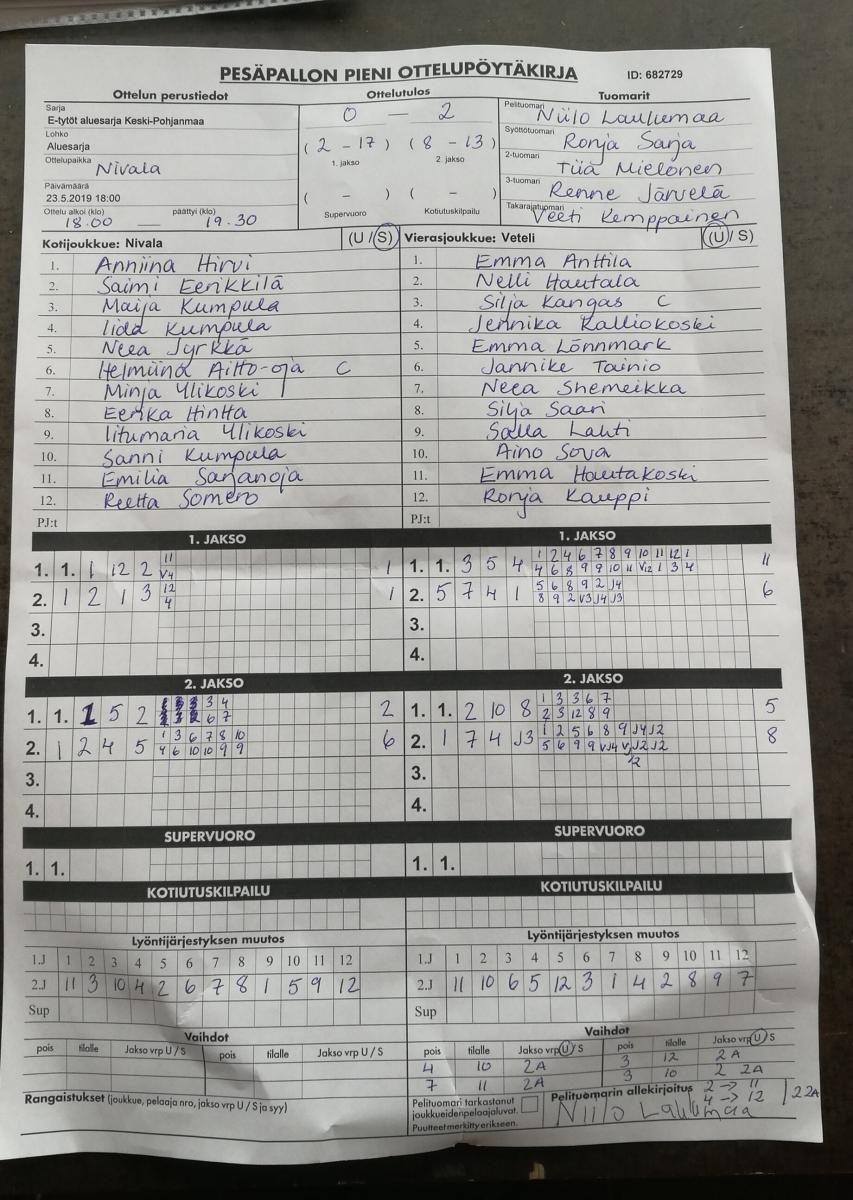 PESÄPALLON PIENI OTTELUPÖYTÄKIRJA ID: 682729
Ottelun perustiedot Ottelutulos Tuomarit
Sarja
E-tytöt aluesarja Keski-Pohjanmaa
Lohko
Aluesarja
Ottelupaikka Nivala
Päivämäärä
23.5.2019 18:00
Ottelu alkoi (klo) päättyi (klo)
18.00 — 19.30
0 — 2
(2 - 17) (8 - 13)
1. jakso 2. jakso
( - ) ( - )
Supervuoro Kotiutuskilpailu
Pelituomari Niilo Laulumaa
Syöttötuomari Ronja Sarja
2-tuomari Tiia Mielonen
3-tuomari Renne Järvelä
Takarajatuomari Veeti Kemppainen
Kotijoukkue: Nivala (U / S)
1. Anniina Hirvi
2. Saimi Eerikkilä
3. Maija Kumpula
4. Iida Kumpula
5. Neea Jyrkkä
6. Helmiina Aitto-oja C
7. Minja Ylikoski
8. Eerika Hintta
9. Iitumaria Ylikoski
10. Sanni Kumpula
11. Emilia Sarjanoja
12. Reetta Somero
PJ:t
Vierasjoukkue: Veteli (U / S)
1. Emma Anttila
2. Nelli Hautala
3. Silja Kangas C
4. Jennika Kalliokoski
5. Emma Lönnmark
6. Jannike Tainio
7. Neea Shemeikka
8. Silja Saari
9. Salla Lahti
10. Aino Sova
11. Emma Hautakoski
12. Ronja Kauppi
PJ:t
1. JAKSO
11
1. 1. 1 12 2 V4 1
12
2. 1 2 1 3 4 1
3.
4.
1. JAKSO
1 2 4 6 7 8 9 10 11 12 1
1. 1. 3 5 4 4 6 8 9 9 10 11 V12 1 3 4 11
5 6 8 9 2 J4
2. 5 7 4 1 8 9 2 V3 J4 J3 6
3.
4.
2. JAKSO
3 4
1. 1. 1 5 2 6 7 2
1 3 6 7 8 10
2. 1 2 4 5 4 6 10 10 9 9 6
3.
4.
2. JAKSO
1 3 3 6 7
1. 1. 2 10 8 2 3 12 8 9 5
1 2 5 6 8 9 J4 J2
2. 1 7 4 J3 5 6 9 9 VJ4 VJ2 J2 8
3.
4.
SUPERVUORO
1. 1.
SUPERVUORO
1. 1.
KOTIUTUSKILPAILU
KOTIUTUSKILPAILU
Lyöntijärjestyksen muutos
1.J 1 2 3 4 5 6 7 8 9 10 11 12
2.J 11 3 10 4 2 6 7 8 1 5 9 12
Sup
Lyöntijärjestyksen muutos
1.J 1 2 3 4 5 6 7 8 9 10 11 12
2.J 11 10 6 5 12 3 1 4 2 8 9 7
Sup
Vaihdot
pois tilalle Jakso vrp U / S pois tilalle Jakso vrp U / S
Vaihdot
pois tilalle Jakso vrp U / S pois tilalle Jakso vrp U / S
4 10 2A 3 12 2A
7 11 2A 3 10 2 2A
Rangaistukset (joukkue, pelaaja nro, jakso vrp U / S ja syy)
Pelituomari tarkastanut
joukkueiden pelaajaluvat.
Puutteet merkitty erikseen.
Pelituomarin allekirjoitus 2 -> 11
4 -> 12 | 2 2A
Niilo Laulumaa